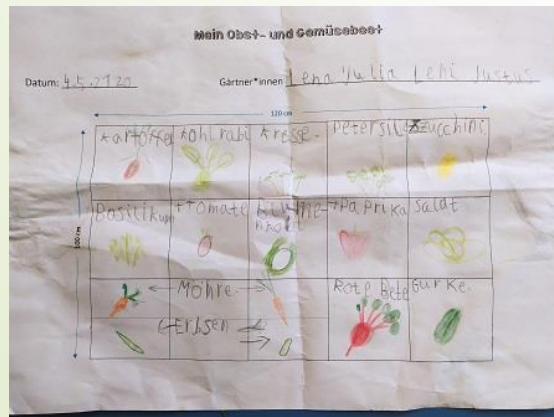 Mein Obst- und Gemüsebeet
Datum: 4.5.2020 Gärtner*innen Lena Julia Leni Justus
120 cm
100 cm
Kartoffel Kohlrabi Kresse. Petersilie Zucchini
Basilikum Tomate Paprika Salat
Möhre. Rote Bete Gurke.
Erbsen